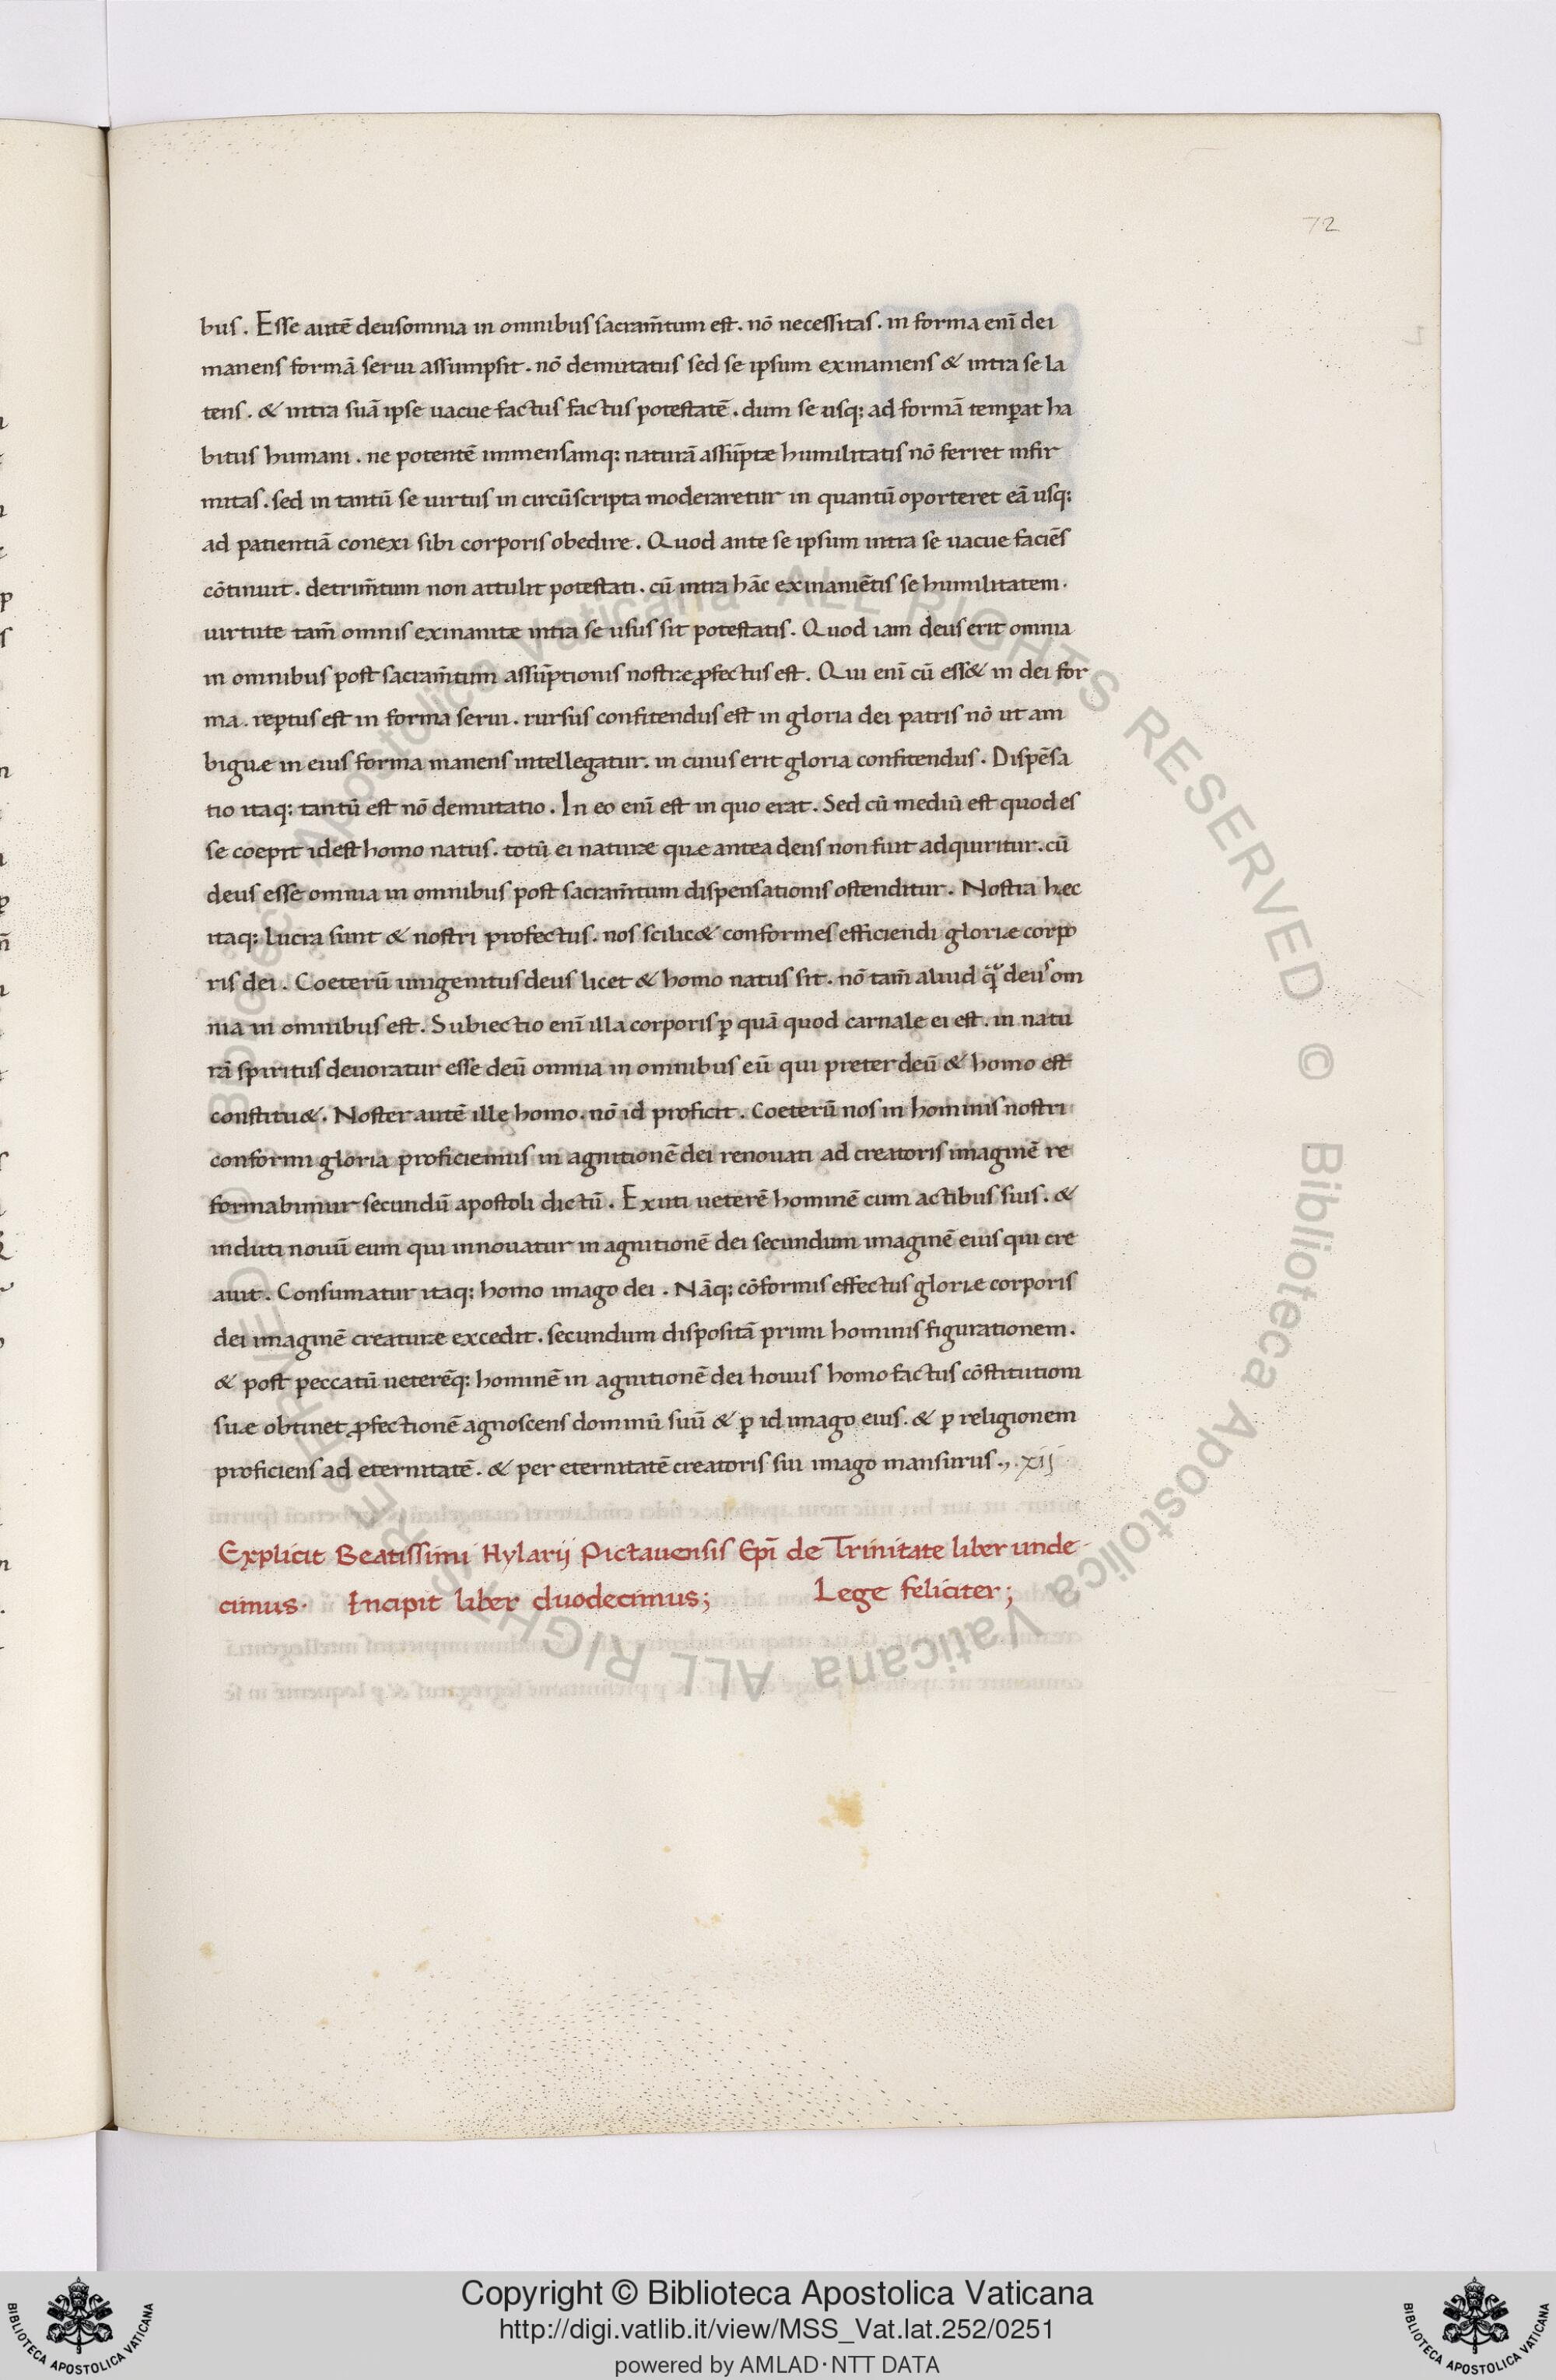 72
bus. Esse autē deusomnia in omnibus sacram̄tum est. nō necessitas. in forma enī dei
manens formā serui assumpsit. nō demutatus sed se ipsum exinaniens & intra se la
tens. & intra suā ipse uacue factus factus potestatē. dum se usq; ad formā temꝑat ha
bitus humani. ne potentē immensamq; naturā assūptæ humilitatis nō ferret infir
mitas. sed in tantū se uirtus in circūscripta moderaretur in quantū oporteret eā usq;
ad patientiā conexi sibi corporis obedire. Quod ante se ipsum intra se uacue faciēs
cōtinuit. detrim̄tum non attulit potestati. cū intra hāc exinaniētis se humilitatem.
uirtute tam̄ omnis exinanitæ intra se usus sit potestatis. Quod iam deus erit omnia
in omnibus post sacram̄tum assūptionis nostræ ꝓfectus est. Qui enī cū ess& in dei for
ma. reptus est in forma serui. rursus confitendus est in gloria dei patris nō ut am
biguæ in eius forma manens intellegatur. in cuius erit gloria confitendus. Dispēsa
tio itaq; tantū est nō demutatio. In eo enī est in quo erat. Sed cū mediū est quod es
se coepit idest homo natus. totū ei naturæ quæ antea deus non fuit adquiritur. cū
deus esse omnia in omnibus post sacram̄tum dispensationis ostenditur. Nostra hæc
itaq; lucra sunt & nostri profectus. nos scilic& conformes efficiendi gloriæ corpo
ris dei. Coeterū unigenitus deus licet & homo natus sit. nō tam̄ aliud q̄ deus om
nia in omnibus est. Subiectio enī illa corporis ꝑ quā quod carnale ei est. in natu
rā spiritus deuoratur esse deū omnia in omnibus eū qui preter deū & homo est
constitu&. Noster autē ille homo. nō id proficit. Coeterū nos in hominis nostri
conformi gloria proficiemus in agnitionē dei renouati ad creatoris imaginē re
formabimur secundū apostoli dictū. Exuti ueterē hominē cum actibus suis. &
induti nouū eum qui innouatur in agnitionē dei secundum imaginē eius qui cre
auit. Consumatur itaq; homo imago dei. Nāq; cōformis effectus gloriæ corporis
dei imaginē creaturæ excedit. secundum dispositā primi hominis figurationem.
& post peccatū ueterēq; hominē in agnitionē dei nouus homo factus cōstitutioni
suæ obtinet ꝓfectionē agnoscens dominū suū & ꝑ id imago eius. & ꝑ religionem
proficiens ad eternitatē. & per eternitatē creatoris sui imago mansurus., .xij
Explicit Beatissimi Hylarij Pictauensis Epī de Trinitate liber unde-
cimus. Incipit liber duodecimus; Lege feliciter;
© Biblioteca Apostolica Vaticana ALL RIGHTS RESERVED © Biblioteca Apostolica Vaticana ALL RIGHTS RESERVED
Copyright © Biblioteca Apostolica Vaticana
http://digi.vatlib.it/view/MSS_Vat.lat.252/0251
powered by AMLAD·NTT DATA
BIBLIOTECA APOSTOLICA VATICANA
BIBLIOTECA APOSTOLICA VATICANA